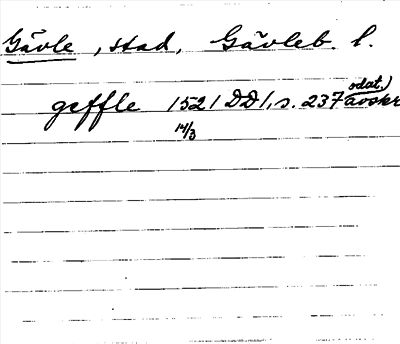 Gävle, stad, Gävleb. l.
geffle 1521 DD1, s. 237 (odat.) avskr
14/3